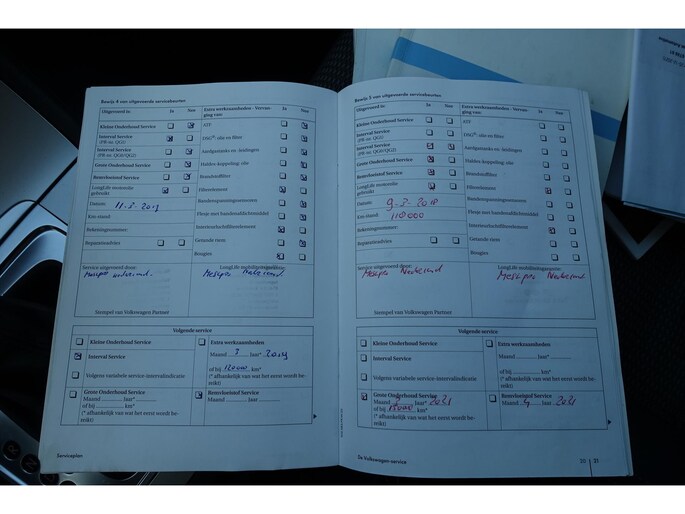 Bewijs 4 van uitgevoerde servicebeurten
Uitgevoerd is: Ja Nee
Extra werkzaamheden - Vervan-
ging van: Ja Nee
Kleine Onderhoud Service
ATF
Interval Service
(PR-nr. QG1)
DSG®- olie en filter
Interval Service
(PR-nr. QG0/QG2)
Aardgastanks en -leidingen
Grote Onderhoud Service
Haldex-koppeling: olie
Remvloeistof Service
Brandstoffilter
LongLife motorolie
gebruikt
Filterelement
Datum:
Bandenspanningssensoren
Km-stand:
Flesje met bandendichtmiddel
Rekeningnummer:
Interieurluchtfilterelement
Reparatieadvies
Getande riem
Bougies
Service uitgevoerd door:
LongLife mobiliteitsgarantie:
Stempel van Volkswagen Partner
Volgende service
Kleine Onderhoud Service
Extra werkzaamheden
Interval Service
Maand 3 jaar* 2019
of bij km*
Volgens variabele service-intervalindicatie
(* afhankelijk van wat het eerst wordt be-
reikt)
Grote Onderhoud Service
Maand jaar*
of bij km*
(* afhankelijk van wat het eerst wordt be-
reikt)
Remvloeistof Service
Maand jaar*
Serviceplan
Bewijs 5 van uitgevoerde servicebeurten
Uitgevoerd is: Ja Nee
Extra werkzaamheden - Vervan-
ging van: Ja Nee
Kleine Onderhoud Service
ATF
Interval Service
(PR-nr. QG1)
DSG®- olie en filter
Interval Service
(PR-nr. QG0/QG2)
Aardgastanks en -leidingen
Grote Onderhoud Service
Haldex-koppeling: olie
Remvloeistof Service
Brandstoffilter
LongLife motorolie
gebruikt
Filterelement
Datum: 9-3-2018
Bandenspanningssensoren
Km-stand: 110000
Flesje met bandendichtmiddel
Rekeningnummer:
Interieurluchtfilterelement
Reparatieadvies
Getande riem
Bougies
Service uitgevoerd door:
LongLife mobiliteitsgarantie:
Stempel van Volkswagen Partner
Volgende service
Kleine Onderhoud Service
Extra werkzaamheden
Interval Service
Maand jaar*
of bij km*
Volgens variabele service-intervalindicatie
(* afhankelijk van wat het eerst wordt be-
reikt)
Grote Onderhoud Service
Maand jaar*
of bij km*
(* afhankelijk van wat het eerst wordt be-
reikt)
Remvloeistof Service
Maand jaar*
De Volkswagen-service